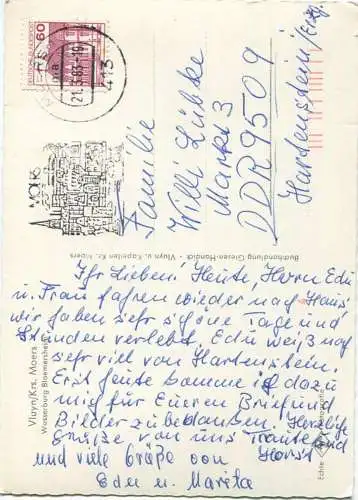 60
DEUTSCHE BUNDESPOST
21.-3.83-19
413
MOERS
Familie
Willi Lübke
Markt 3
DDR 9509
Hartenstein/Erzg.
Buchhandlung Giesen-Handick - Vluyn u. Kapellen Kr. Moers
Vluyn/Krs. Moers
Wasserburg Bloemersheim
Ihr Lieben! Heute, Herrn Edu
u. Frau fahren wieder nag Haus'
wir haben sehr schöne Tage und
Stunden verlebt. Edu weiß nag
sehr viel von Hartenstein.
Erst heute komme ich dazu
mich für Eueren Brief und
Bilder zu bedanken. Herzliche
Grüße von uns Traute und
und viele Grüße von Horst
Edu u. Marita
Echte Fotografie